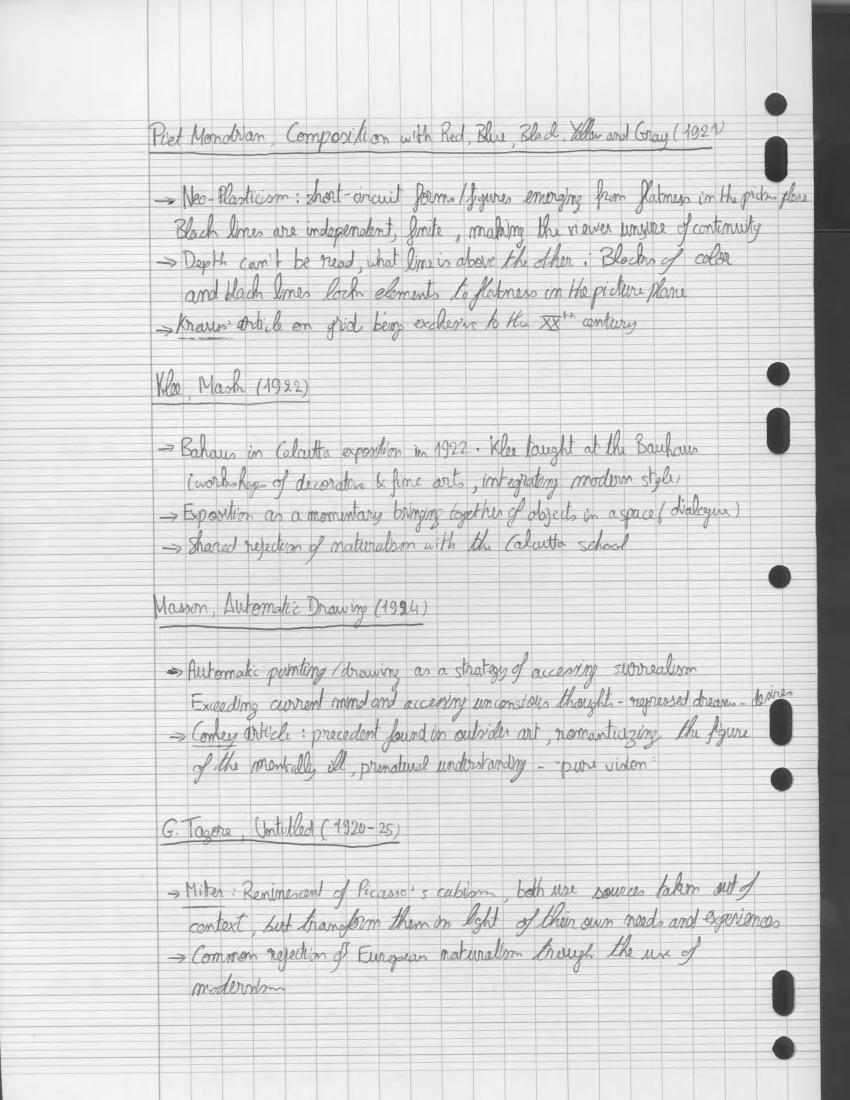 Piet Mondrian, Composition with Red, Blue, Black, Yellow and Gray (1921)
→ Neo-Plasticism : short-circuit forms/figures emerging from flatness in the picture plane
Black lines are independent, finite, making the viewer unsure of continuity
→ Depth can't be read, what line is above the other : Blocks of color
and black lines lock elements to flatness in the picture plane
→ Krauss' article on grids being exclusive to the XXth century
Klee, Mask (1922)
→ Bahaus in Calcutta exposition in 1922. Klee taught at the Bauhaus
(workshop of decorative & fine arts, integrating modern style)
→ Exposition as a momentary bringing together of objects in a space (dialogue)
→ Shared rejection of naturalism with the Calcutta school
Masson, Automatic Drawing (1924)
→ Automatic painting/drawing as a strategy of accessing surrealism
Exceeding current mind and accessing unconsious thoughts - repressed dreams - desires
→ Conley article : precedent found in outsider art, romanticizing the figure
of the mentally ill, prenatural understanding - "pure vision"
G. Tagore, Untitled (1920-25)
→ Mitter : Reminescent of Picasso's cubism, both use sources taken out of
context, but transform them in light of their own needs and experiences
→ Common rejection of European naturalism through the use of
modernism